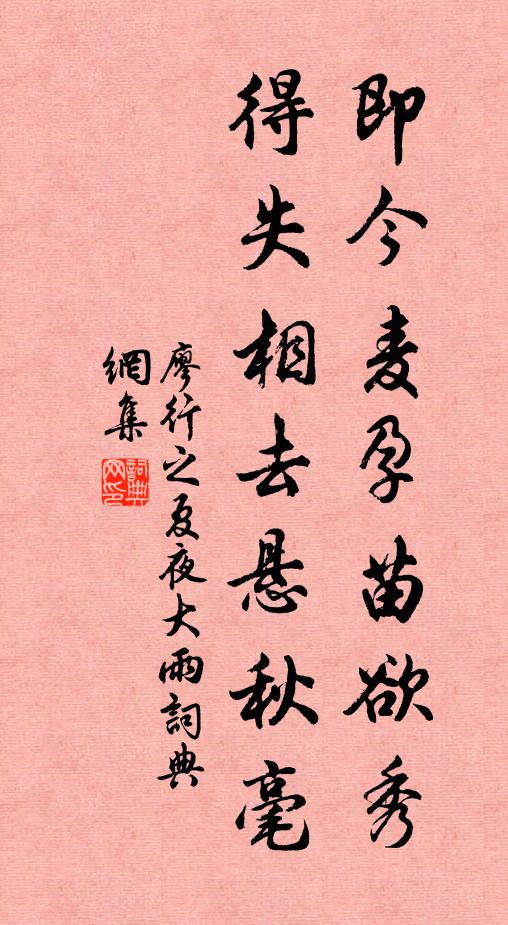 即今麦孕苗欲秀
得失相去悬秋毫
廖行之夏夜大雨詞典
網集
詞典网印